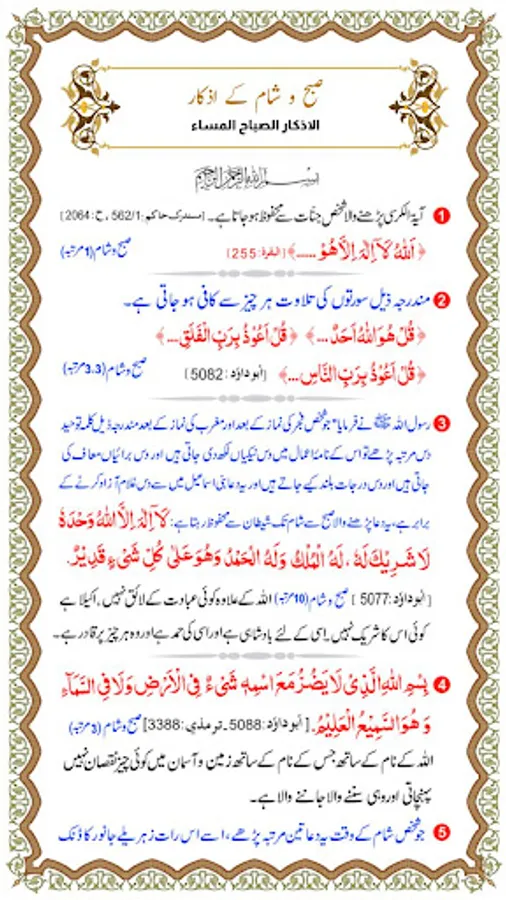 صبح و شام کے اذکار
الاذکار الصباح المساء
بسم الله الرحمن الرحيم
1 آیۃ الکرسی پڑھنے والا شخص جنّات سے محفوظ ہو جاتا ہے۔ [مستدرک حاکم: 562/1، ح: 2064]
﴿اَللّٰهُ لَاۤ اِلٰهَ اِلَّا هُوَ.....﴾ [البقرة: 255] صبح و شام (1 مرتبہ)
2 مندرجہ ذیل سورتوں کی تلاوت ہر چیز سے کافی ہو جاتی ہے۔
﴿قُلْ هُوَ اللّٰهُ اَحَدٌ...﴾ ﴿قُلْ اَعُوْذُ بِرَبِّ الْفَلَقِ...﴾
﴿قُلْ اَعُوْذُ بِرَبِّ النَّاسِ...﴾ [ابوداؤد: 5082] صبح و شام (3.3 مرتبہ)
3 رسول اللہ ﷺ نے فرمایا "جو شخص فجر کی نماز کے بعد اور مغرب کی نماز کے بعد مندرجہ ذیل کلمہ توحید
دس مرتبہ پڑھے تو اس کے نامۂ اعمال میں دس نیکیاں لکھ دی جاتی ہیں اور دس برائیاں معاف کی
جاتی ہیں اور دس درجات بلند کیے جاتے ہیں اور یہ دعا بنی اسماعیل میں سے دس غلام آزاد کرنے کے
برابر ہے، یہ دعا پڑھنے والا صبح سے شام تک شیطان سے محفوظ رہتا ہے: لَاۤ اِلٰهَ اِلَّا اللّٰهُ وَحْدَهٗ
لَا شَرِيْكَ لَهٗ، لَهُ الْمُلْكُ وَلَهُ الْحَمْدُ وَهُوَ عَلٰى كُلِّ شَىْءٍ قَدِيْرٌ.
[ابوداؤد: 5077] صبح و شام (10 مرتبہ) اللہ کے علاوہ کوئی عبادت کے لائق نہیں، اکیلا ہے
کوئی اس کا شریک نہیں۔ اسی کے لئے بادشاہی ہے اور اسی کی حمد ہے اور وہ ہر چیز پر قادر ہے۔
4 بِسْمِ اللّٰهِ الَّذِىْ لَا يَضُرُّ مَعَ اسْمِهٖ شَىْءٌ فِى الْاَرْضِ وَلَا فِى السَّمَآءِ
وَهُوَ السَّمِيْعُ الْعَلِيْمُ. [ابوداؤد: 5088۔ ترمذی: 3388] صبح و شام (3 مرتبہ)
اللہ کے نام کے ساتھ جس کے نام کے ساتھ زمین و آسمان میں کوئی چیز نقصان نہیں
پہنچاتی اور وہی سننے والا جاننے والا ہے۔
5 جو شخص شام کے وقت یہ دعا تین مرتبہ پڑھے، اسے اس رات زہریلے جانور کا ڈنک